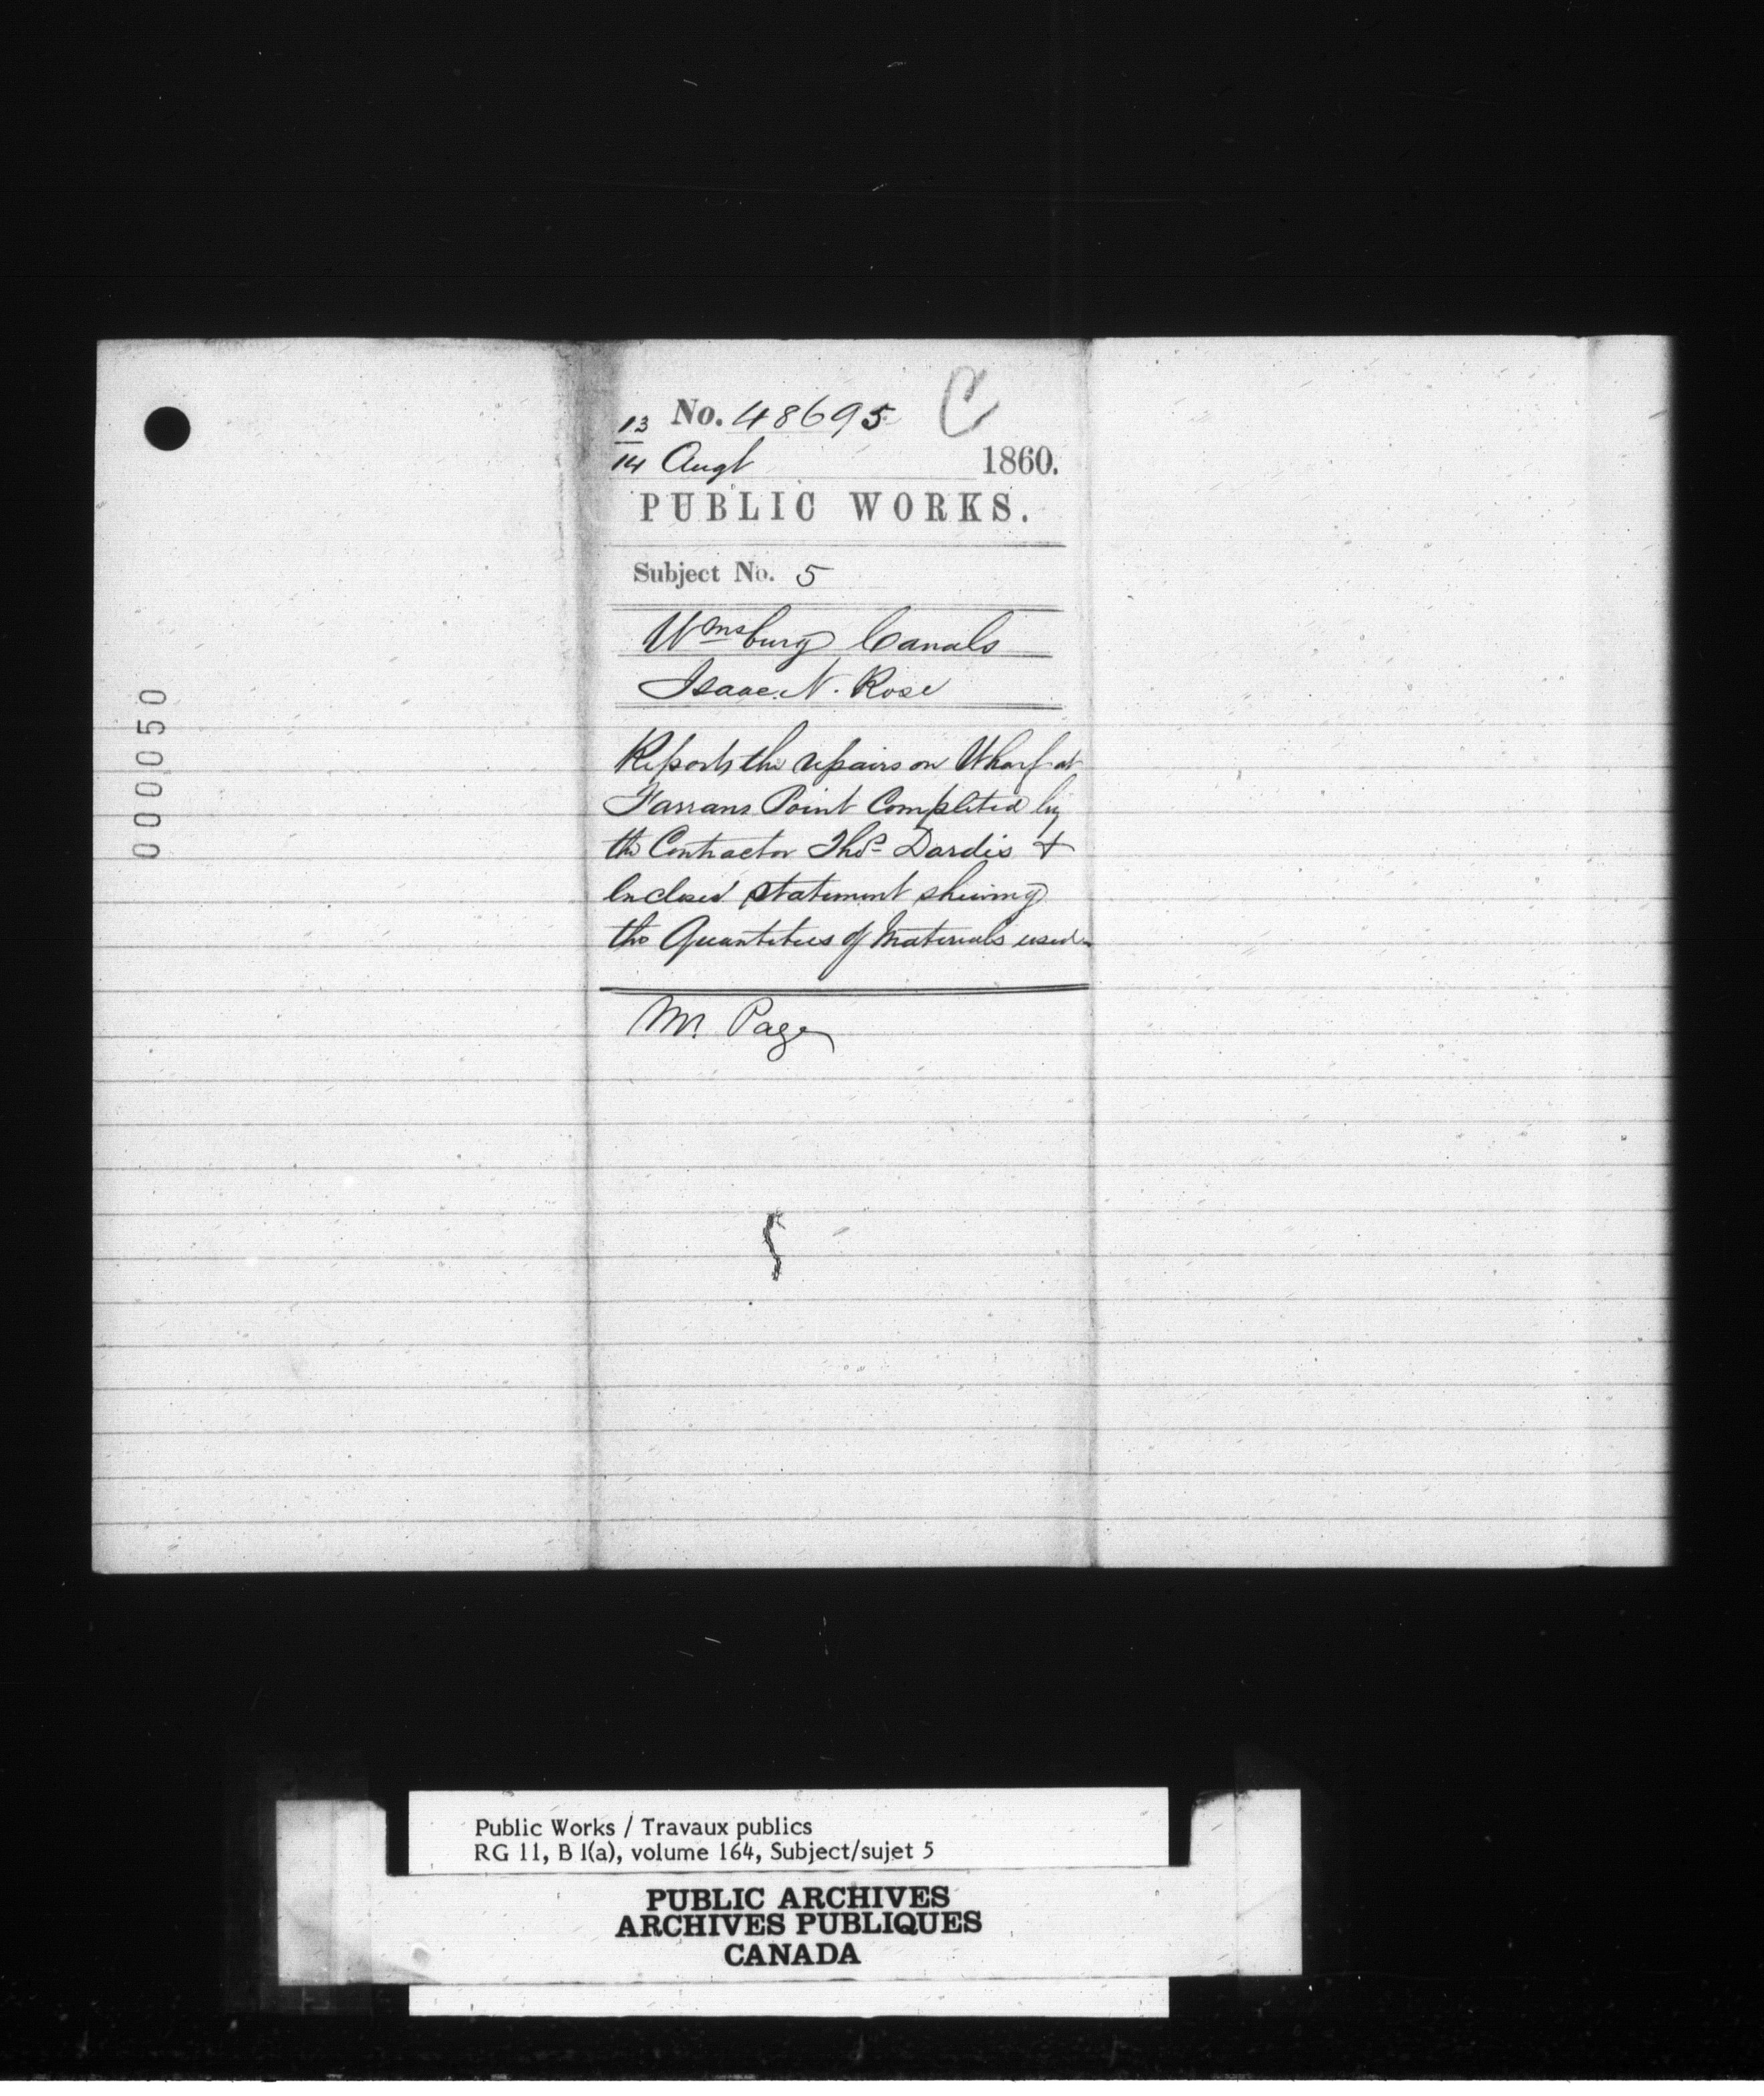 000050
C
No. 48695
13
14 Augt 1860.
PUBLIC WORKS.
Subject No. 5
Wmsburg Canals
Isaac. N. Rose
Reports the repairs on Wharf at
Farrans Point Completed by
the Contractor Thos Dardis +
encloses statement shewing
the Quantities of Materials used
Mr. Page
Public Works / Travaux publics
RG 11, B 1(a), volume 164, Subject/sujet 5
PUBLIC ARCHIVES
ARCHIVES PUBLIQUES
CANADA